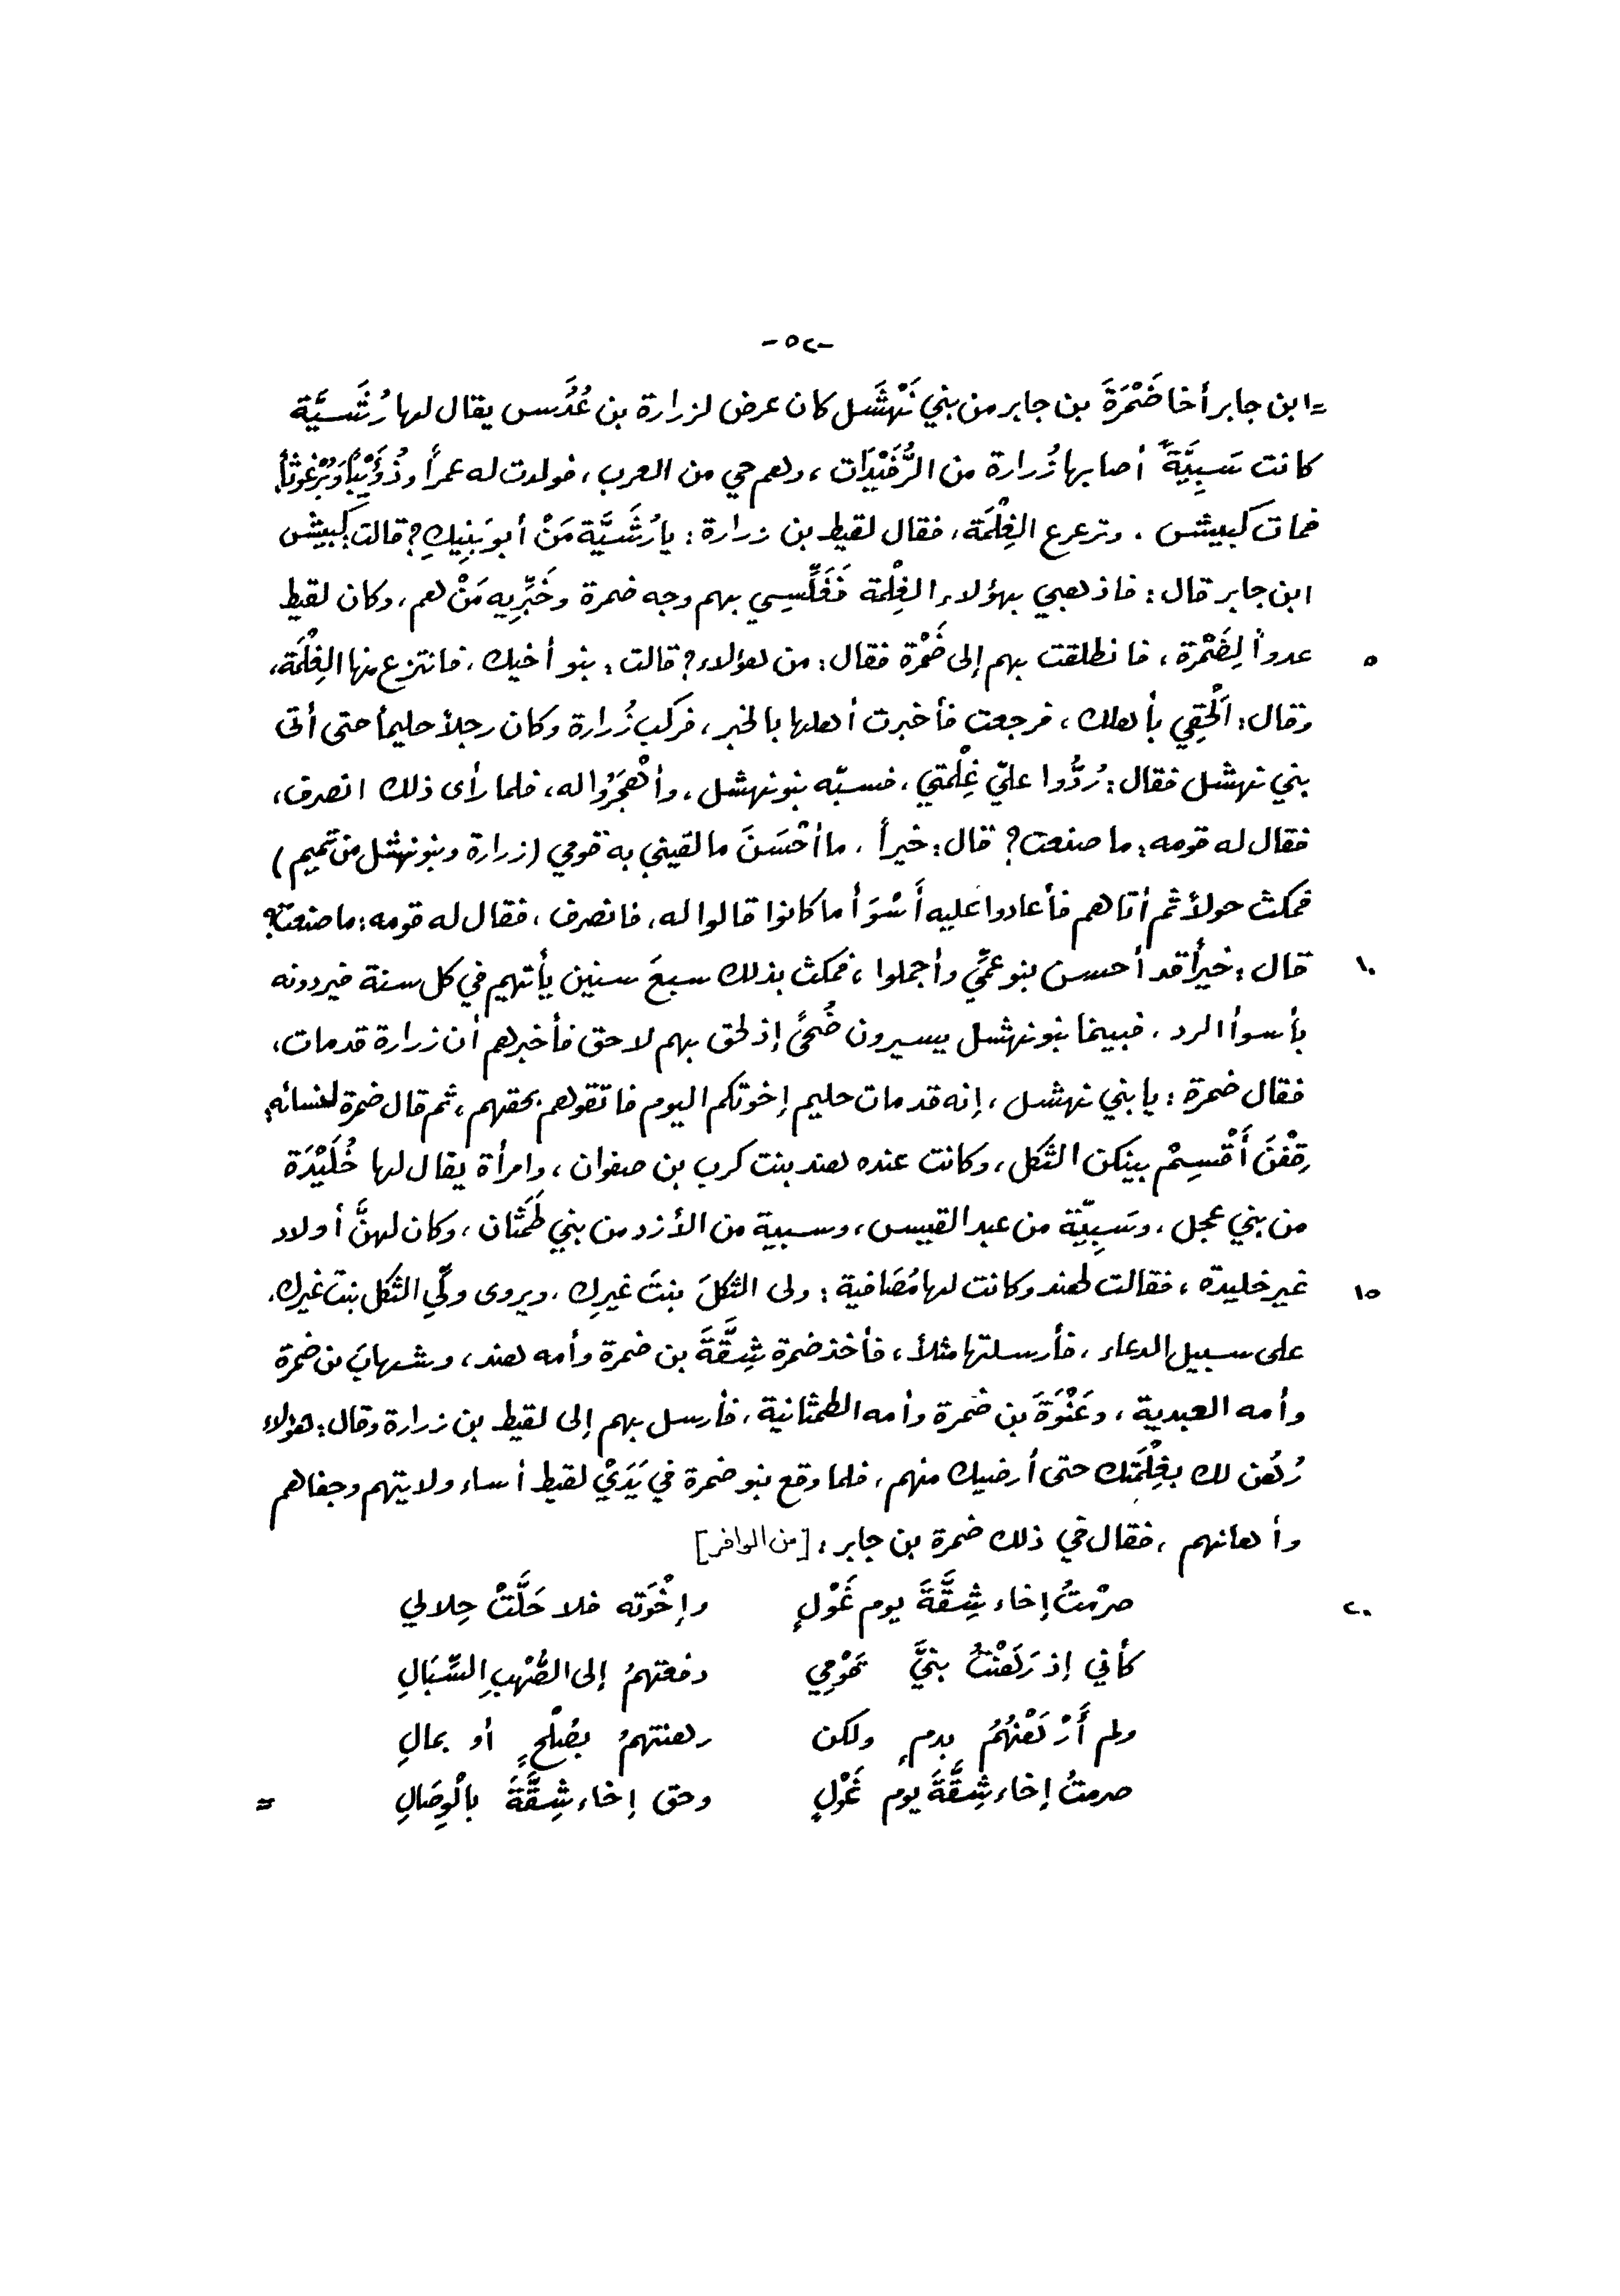 -٥٢-
=ابن جابر أخا ضَمْرَةَ بن جابر من بني نَهْشَل كان عرض لزرارة بن عُدُس يقال لها رُشَيَّة
كانت سَبِيَّةً أصابها زُرارة من الرُّفَيْدَات، وهم حي من العرب، فولدت له عمراً وذُؤَيْباً وَبُرْغوثاً،
فمات كبيش. وترعرع الغِلْمَة، فقال لقيط بن زرارة: يا رُشَيَّة مَنْ أبو بَنِيكِ؟ قالت كُبيش
ابن جابر قال: فاذهبي بهؤلاء الغِلْمة فَغَلِّسِي بهم وجه ضمرة وخَبِّرِيه مَنْ هم، وكان لقيط
عدواً لِضَمْرَة، فانطلقت بهم إلى ضَمْرة فقال: من هؤلاء؟ قالت: بنو أخيك، فانتزع منها الغِلْمَة،
٥
وقال: اَلْحَقِي بأهلك، فرجعت فأخبرت أهلها بالخبر، فركب زُرارة وكان رجلاً حليماً حتى أتى
بني نهشل فقال: رُدُّوا عليّ غِلْمتي، فسبّه بنو نهشل، وأهْجَرُوا له، فلما رأى ذلك انصرف،
فقال له قومه: ما صنعت؟ قال: خيراً، ما أحْسَنَ ما لقيني به قومي (زرارة وبنو نهشل من تميم)
فمكث حولاً ثم أتاهم فأعادوا عليه أَسْوَأ ما كانوا قالوا له، فانصرف، فقال له قومه: ما صنعت؟
قال: خيراً قد أحسن بنو عمِّي وأجملوا، فمكث بذلك سبعَ سنين يأتيهم في كل سنة فيردونه
١٠
بأسوأ الرد، فبينما بنو نهشل يسيرون ضُحىً إذ لحق بهم لاحق فأخبرهم أن زرارة قد مات،
فقال ضمرة: يا بني نهشل، إنه قد مات حليم إخوتكم اليوم فاتقوهم بحقهم، ثم قال ضمرة لنسائه:
قِفْنَ أَقْسِمْ بينكن الثكل، وكانت عنده هند بنت كرب بن صفوان، وامرأة يقال لها خُلَيْدَة
من بني عجل، وسَبِيّة من عبد القيس، وسبية من الأزد من بني طَمَثَان، وكان لهنَّ أولاد
غير خليدة، فقالت لهند وكانت لها مُصَافية: ولى الثكلَ بنتَ غيرِك، ويروى ولِّي الثكل بنت غيرك،
١٥
على سبيل الدعاء، فأرسلتها مثلاً، فأخذ ضمرة شِقَّةَ بن ضمرة وأمه هند، وشهابَ بن ضمرة
وأمه العبدية، وعَنْوَةَ بن ضمرة وأمه الطمثانية، فأرسل بهم إلى لقيط بن زرارة وقال: هؤلاء
رُهُن لك بغِلْمَتِك حتى أرضيك منهم، فلما وقع بنو ضمرة في يَدَيْ لقيط أساء ولايتهم وجفاهم
وأهانهم، فقال في ذلك ضمرة بن جابر: [من الوافر]
صرمْتُ إخاء شِقَّةَ يوم غَوْلٍ وإخْوَته فلا حَلَّتْ حِلالي
٢٠
كأني إذ رَهَنْتُ بنيَّ قَوْمِي دفعتهمُ إلى الصُّهْبِ السِّبَالِ
ولم أَرْهَنْهُمُ بدمٍ ولكن رهنتهمُ بصُلْحٍ أو بمالِ
صرمتُ إخاء شِقَّةَ يوم غَوْلٍ وحق إخاء شِقَّةَ بالْوِصَالِ =